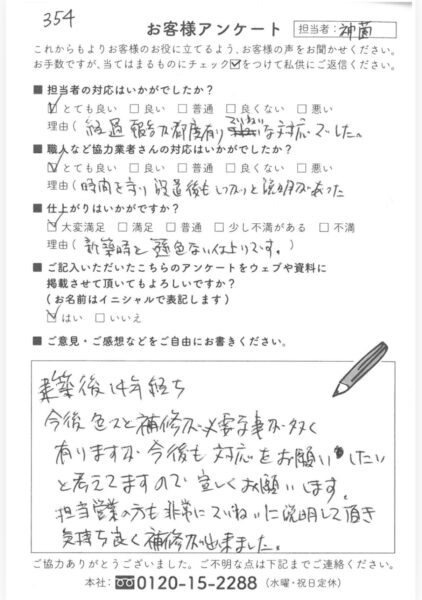 354
お客様アンケート 担当者：神薗
これからもよりお客様のお役に立てるよう、お客様の声をお聞かせください。
お手数ですが、当てはまるものにチェック☑をつけて私供にご返信ください。
■ 担当者の対応はいかがでしたか？
☑とても良い □良い □普通 □良くない □悪い
理由（経過報告が都度有りていねいな対応でした。
■ 職人など協力業者さんの対応はいかがでしたか？
☑とても良い □良い □普通 □良くない □悪い
理由（時間を守り設置後もしっかりと説明があった
■ 仕上がりはいかがですか？
☑大変満足 □満足 □普通 □少し不満がある □不満
理由（新築時と遜色ない仕上りです。）
■ ご記入いただいたこちらのアンケートをウェブや資料に
掲載させて頂いてもよろしいですか？
（お名前はイニシャルで表記します）
☑はい □いいえ
■ ご意見・ご感想などをご自由にお書きください。
築後14年経ち
今後色々と補修が必要な事が多く
有りますが今後も対応をお願いしたい
と考えてますので宜しくお願いします。
担当営業の方も非常にていねいに説明して頂き
気持ち良く補修が出来ました。
ご協力ありがとうございました。ご不明な点は下記までご連絡ください。
本社：0120-15-2288（水曜・祝日定休）